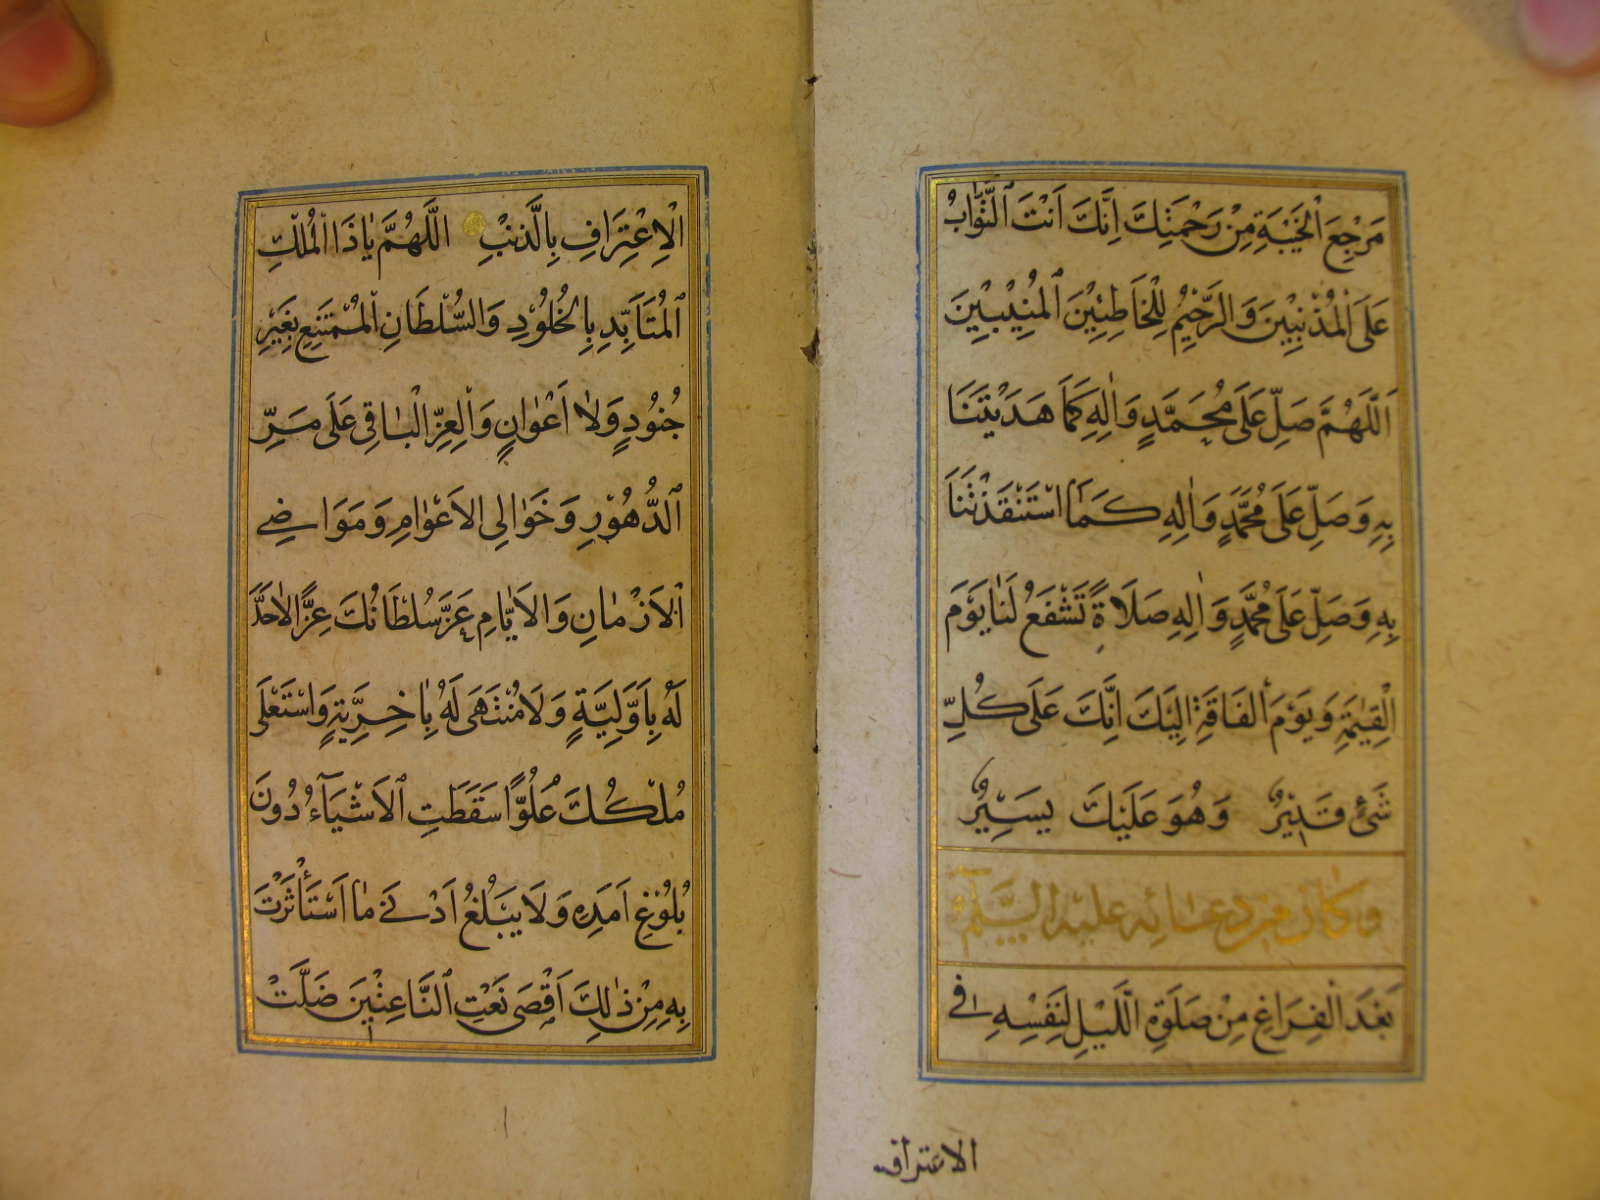 مَرْجِعَ الْخَيْبَةِ مِنْ رَحْمَتِكَ اِنَّكَ اَنْتَ التَّوَّابُ
عَلَى الْمُذْنِبِيْنَ وَالرَّحِيْمُ لِلْخَاطِئِيْنَ الْمُنِيْبِيْنَ
اَللّٰهُمَّ صَلِّ عَلَى مُحَمَّدٍ وَاٰلِهِ كَمَا هَدَيْتَنَا
بِهِ وَصَلِّ عَلَى مُحَمَّدٍ وَاٰلِهِ كَمَا اسْتَنْقَذْتَنَا
بِهِ وَصَلِّ عَلَى مُحَمَّدٍ وَاٰلِهِ صَلَاةً تَشْفَعُ لَنَا يَوْمَ
الْقِيٰمَةِ وَيَوْمَ الْفَاقَةِ اِلَيْكَ اِنَّكَ عَلَى كُلِّ
شَىْءٍ قَدِيْرٌ وَهُوَ عَلَيْكَ يَسِيْرٌ
وكان من دعائه عليه السلام
بَعْدَ الْفِرَاغِ مِنْ صَلٰوةِ اللَّيْلِ لِنَفْسِهِ فى
الاعتراف
الْاِعْتِرَافِ بِالذَّنْبِ اَللّٰهُمَّ يَا ذَا الْمُلْكِ
الْمُتَاَبِّدِ بِالْخُلُوْدِ وَالسُّلْطَانِ الْمُمْتَنِعِ بِغَيْرِ
جُنُوْدٍ وَلَا اَعْوَانٍ وَالْعِزِّ الْبَاقِى عَلَى مَرِّ
الدُّهُوْرِ وَخَوَالِى الْاَعْوَامِ وَمَوَاضِى
الْاَزْمَانِ وَالْاَيَّامِ عَزَّ سُلْطَانُكَ عِزًّا لَا حَدَّ
لَهُ بِاَوَّلِيَّةٍ وَلَا مُنْتَهَى لَهُ بِاٰخِرِيَّةٍ وَاسْتَعْلَى
مُلْكُكَ عُلُوًّا سَقَطَتِ الْاَشْيَآءُ دُوْنَ
بُلُوْغِ اَمَدِهِ وَلَا يَبْلُغُ اَدْنٰى مَا اسْتَأْثَرْتَ
بِهِ مِنْ ذٰلِكَ اَقْصَى نَعْتِ النَّاعِتِيْنَ ضَلَّتْ